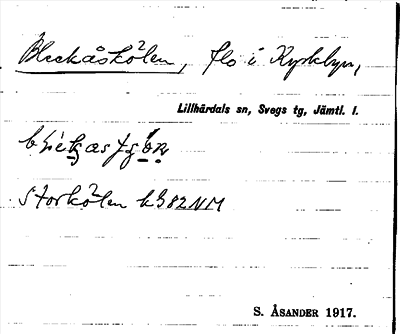 Bleckåskölen, flo i Kyrkbyn,
Lillhärdals sn, Svegs tg, Jämtl. l.
Storkölen k382NM
S. ÅSANDER 1917.